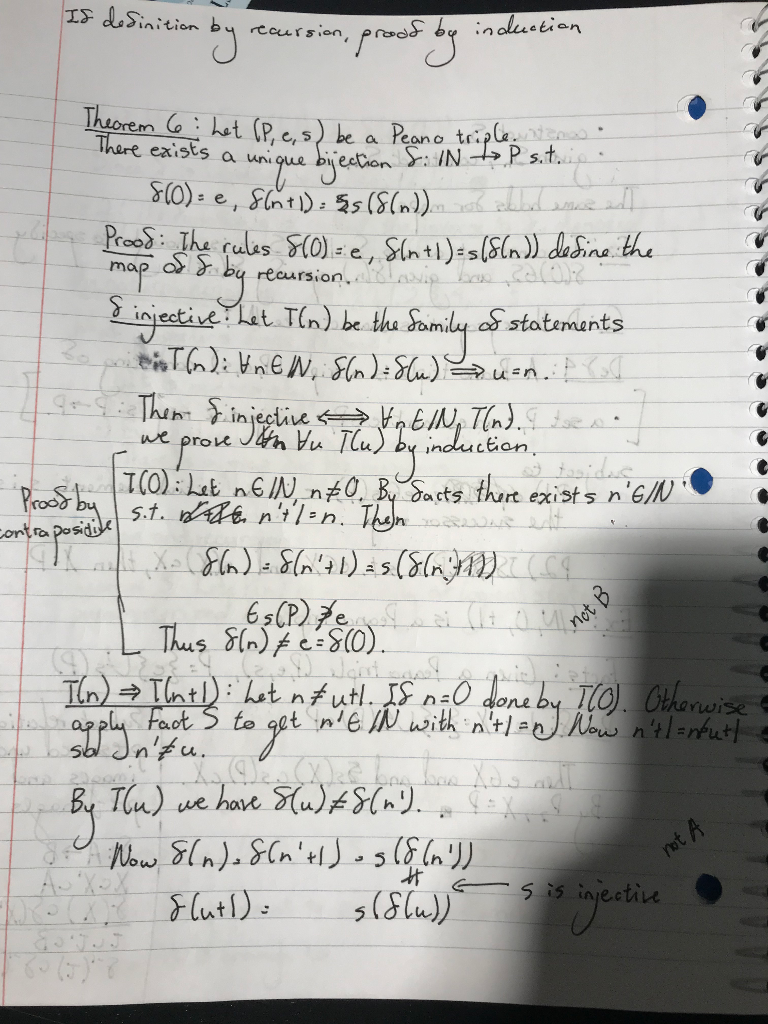 If definition by recursion, proof by induction
Theorem 6: Let (P, e, s) be a Peano triple.
There exists a unique bijection f: ℕ → P s.t.
f(0) = e, f(n+1) = s(f(n))
Proof: The rules f(0) = e, f(n+1) = s(f(n)) define the
map of f by recursion.
f injective: Let T(n) be the family of statements
T(n): ∀n∈ℕ, f(n) = f(u) ⟹ u = n.
Then f injective ⟺ ∀n∈ℕ, T(n).
we prove ∀u T(u) by induction.
Proof by
contrapositive
T(0): Let n∈ℕ, n≠0. By facts there exists n'∈ℕ
s.t. n'+1 = n. Then
f(n) = f(n'+1) = s(f(n'))
∈ s(P) ∌ e
Thus f(n) ≠ e = f(0).
not B
T(n) ⇒ T(n+1): Let n ≠ u+1. If n=0 done by T(0). Otherwise
apply Fact 5 to get n'∈ℕ with n'+1 = n. Now n'+1 = n ≠ u+1
so n' ≠ u.
By T(u) we have f(u) ≠ f(n').
not A
Now f(n) = f(n'+1) = s(f(n'))
≠ ← s is injective
f(u+1) = s(f(u))